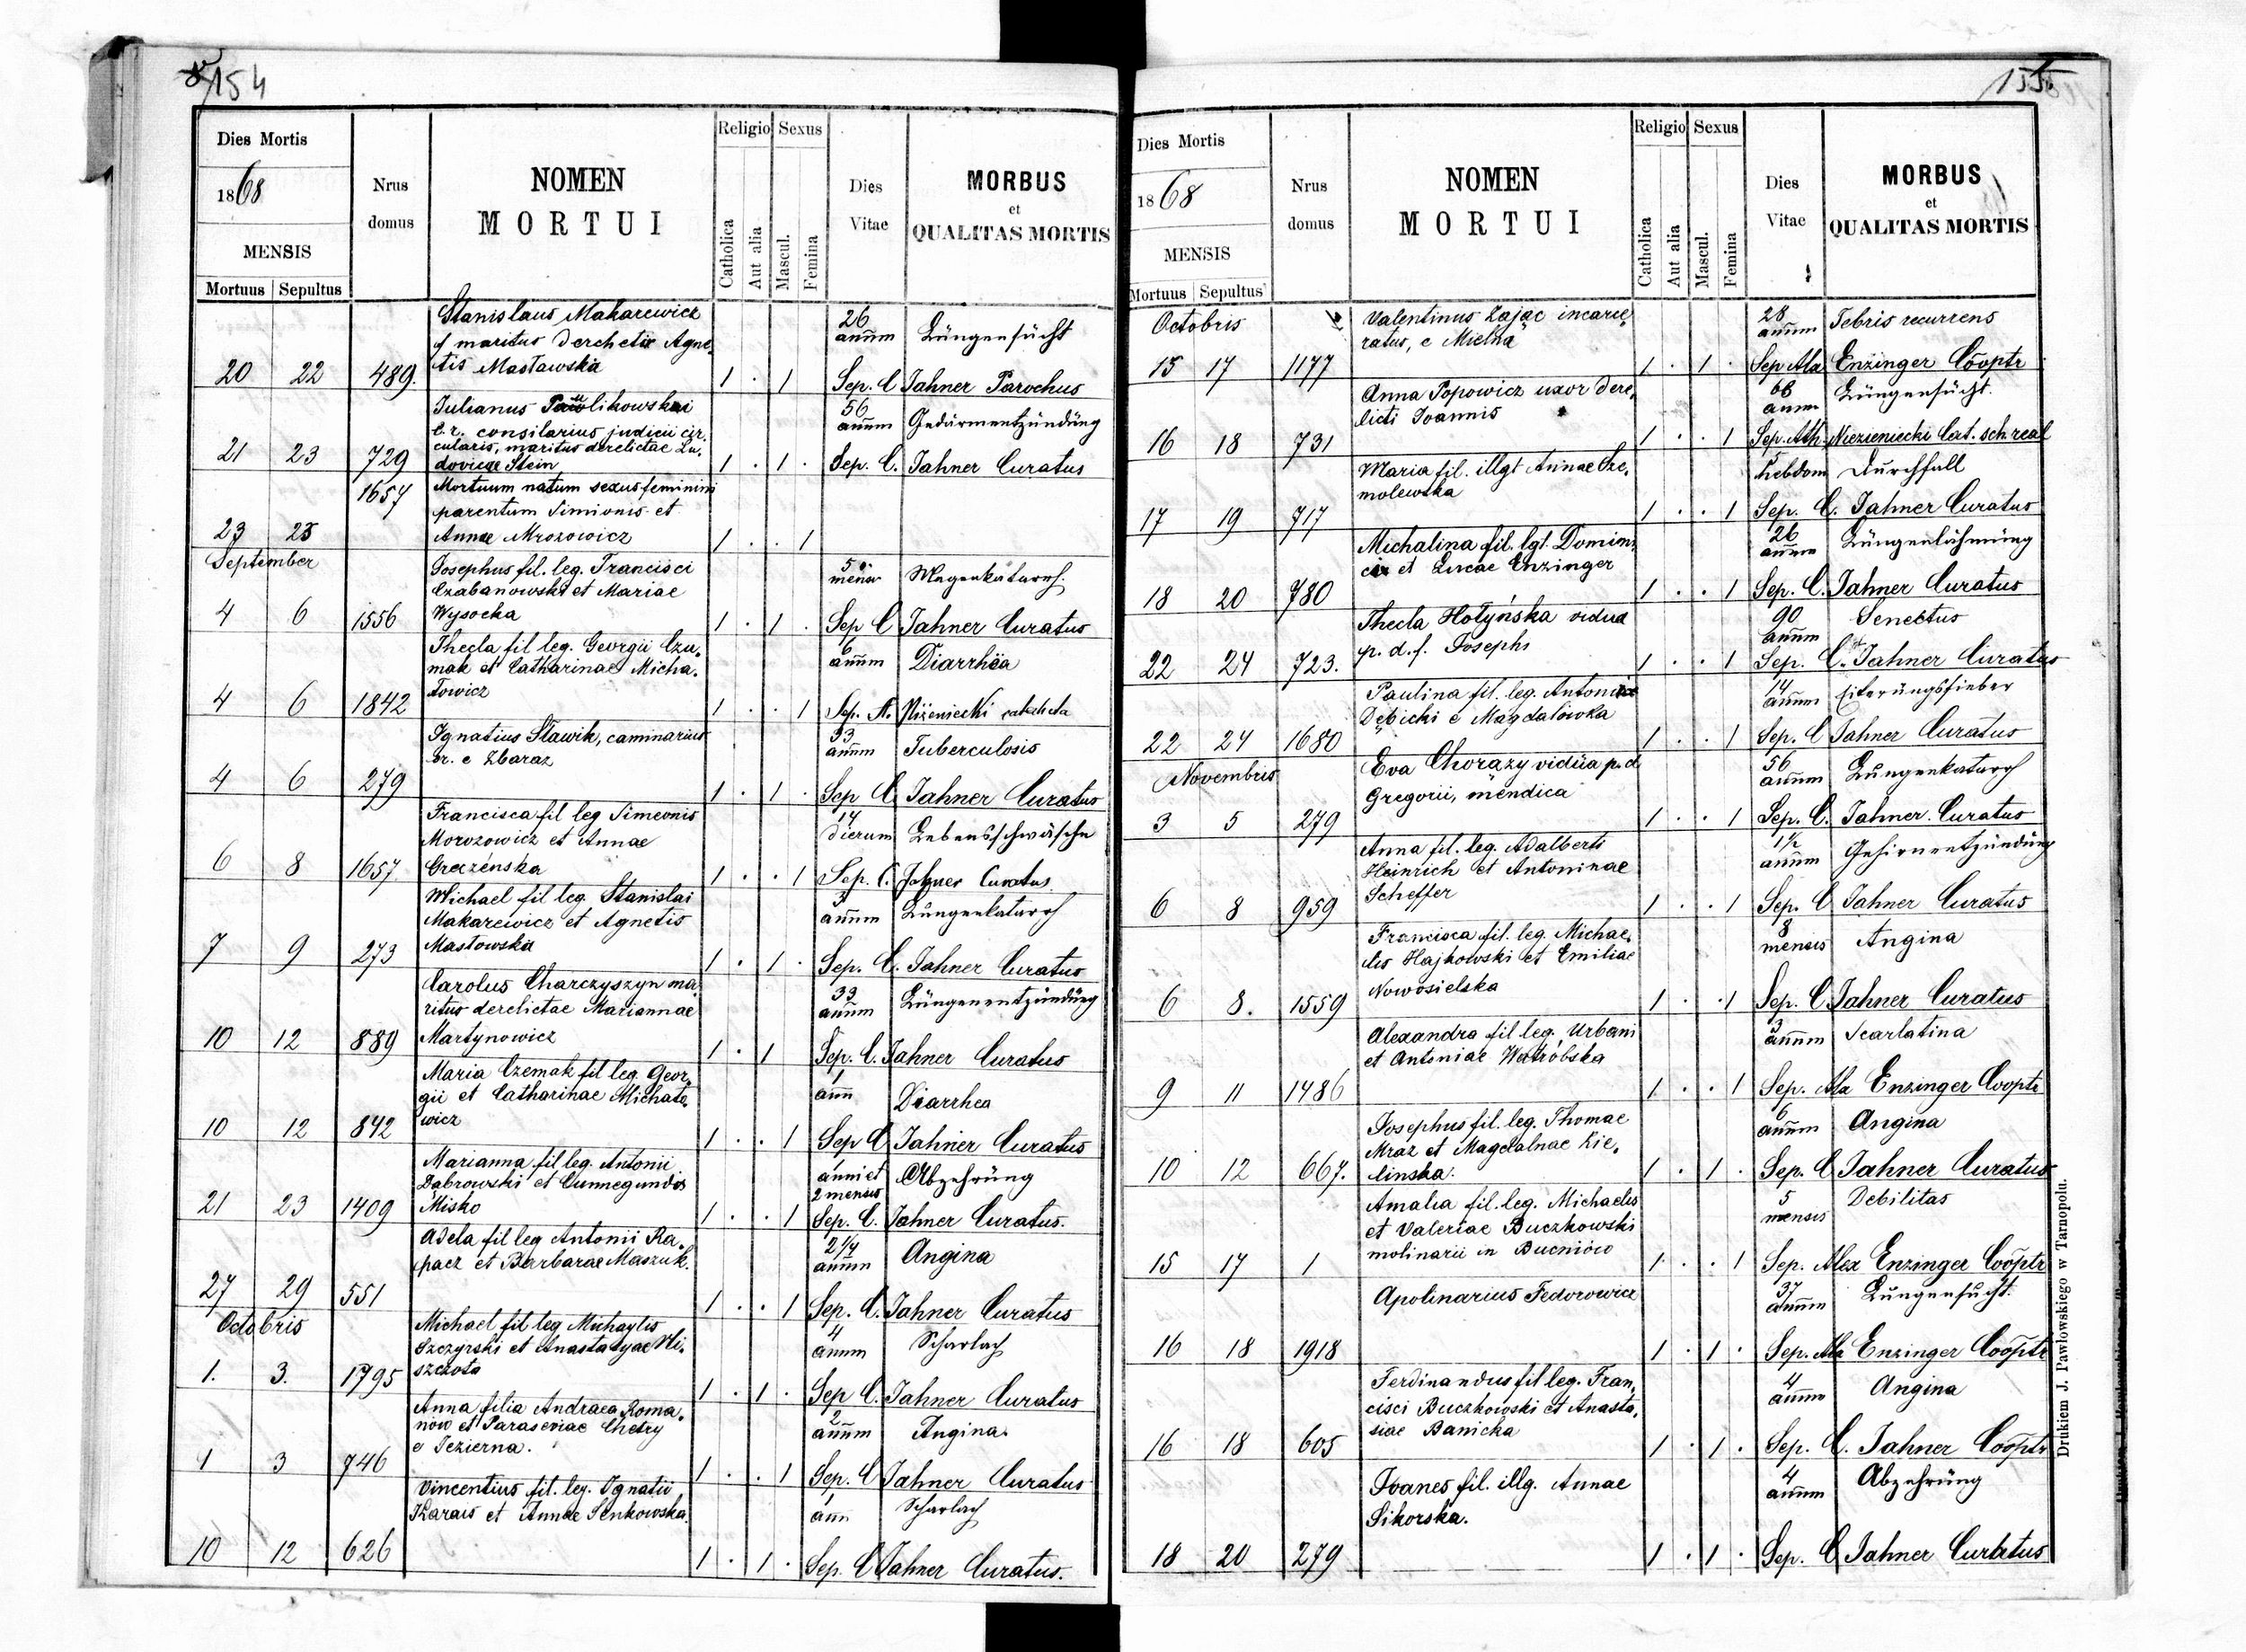 154
Dies Mortis
1868
MENSIS
Mortuus Sepultus
Nrus domus
NOMEN
MORTUI
Religio Sexus
Catholica
Aut alia
Mascul.
Femina
Dies
Vitae
MORBUS
et
QUALITAS MORTIS
Stanislaus Makarewicz 26
maritus derchetis Agne, anum Lüngensücht
20 22 489. tis Masławska 1 . 1 Sep. C Jahner Parochus
Julianus Pawlikowski 56
C. r. consilarius judicii cir, anum Gedärmentzündüng
cularis, maritus derelictae Lu,
21 23 729 dovicae Stein 1 . 1 . Sep. C. Jahner Curatus
1657 Mortuum natum sexus feminini
parentum Simionis et
23 25 Annae Mrozowicz 1 . . 1
September
Josephus fil. leg. Francisci 5
Czabanowski et Mariae mens Magenkatarrh.
4 6 1556 Wysocka 1 . 1 . Sep C Jahner Curatus
Thecla fil leg. Georgii Czu, 6
mak et Catharinae Micha, anum Diarrhëa
4 6 1842 łowicz 1 . . 1 Sep. A. Niżeniecki catecheta
Ignatius Sławik, caminarius 33
br. e Zbaraz anum Tuberculosis
4 6 279 1 . 1 . Sep C Jahner Curatus
Francisca fil leg Simeonis 14
Morozowicz et Annae dierum Lebensschwäsche
6 8 1657. Greczeńska 1 . . 1 Sep. C. Jahner Curatus
Michael fil leg. Stanislai 3
Makarewicz et Agnetis anum Lüngenkatarrh
7 9 273 Masłowska 1 . 1 . Sep. C. Jahner Curatus
Carolus Charczyszyn ma, 33
ritus derelictae Mariannae anum Lüngenentzündüng
10 12 889 Martynowicz 1 . 1 Sep. C. Jahner Curatus
Maria Czemak fil leg. Geor, 1
gii et Catharinae Michało, ann Diarrhea
10 12 842 wicz 1 . . 1 Sep C Jahner Curatus
Marianna fil leg. Antonii 1
Dabrowski et Cunnegundis anni et Abzehrüng
2 menses
21 23 1409 Misko 1 . . 1 Sep. C. Jahner Curatus.
Adela fil leg Antonii Ra, 2 1/4
pacz et Barbarae Maszuk. anum Angina
27 29 551 1 . . 1 Sep. C. Jahner Curatus
Octobris
Michael fil leg Michaylis 4
Szczyrski et Anastasyae Mi, anum Scharlach
1. 3. 1795 szczota 1 . 1 . Sep C. Jahner Curatus
Anna filia Andraea Roma, 2
now et Parasceviae Chetry anum Angina.
1 3 746 e Jezierna. 1 . . 1 Sep. C Jahner Curatus
Vincentius fil. leg. Ignatii 1
Karais et Annae Senkowska. ann Scharlach
10 12 626 1 . 1 . Sep. C Jahner Curatus.
155.
Dies Mortis
1868
MENSIS
Mortuus Sepultus
Nrus domus
NOMEN
MORTUI
Religio Sexus
Catholica
Aut alia
Mascul.
Femina
Dies
Vitae
MORBUS
et
QUALITAS MORTIS
Octobris Valentinus Zając incarce, 28
ratus, e Mielna anum Febris recurrens
15 17 1177 1 . 1 . Sep Alex Enzinger Cooptr
Anna Popowicz uxor dere, 66
licti Joannis anum Lüngensücht.
16 18 731 1 . . 1 Sep. Ath. Niezieniecki Cat. sch. real
Maria fil. illgt Annae Sze, 5
molewska hebdom Durchfall
17 19 717 1 . . 1 Sep. C. Jahner Curatus
Michalina fil. lgt. Domini, 26
ci et Lucae Enzinger anum Lüngenlähmüng
18 20 780 1 . . 1 Sep. C. Jahner Curatus
Thecla Hołyńska vidua 90
p. d. f. Josephi anum Senectus
22 24 723. 1 . . 1 Sep. C. Jahner Curatus
Paulina fil. leg. Antonii 14
Dębicki e Magdalówka anum Eiterüngsfieber
22 24 1680 1 . . 1 Sep. C Jahner Curatus
Novembris
Eva Chorązy vidüa p. d 56
Gregorii, mendica anum Lungenkatarrh
3 5 279 1 . . 1 Sep. C. Jahner Curatus
Anna fil. leg. Adalberti 1 1/2
Heinrich et Antoninae anum Gehirnentzündüng
6 8 959 Scheffer 1 . . 1 Sep. C Jahner Curatus
Francisca fil. leg. Michae, 8
lis Hajkowski et Emiliae mensis Angina
6 8. 1559 Nowosielska 1 . . 1 Sep. C Jahner Curatus
Alexandra fil leg. Urbani 3
et Antoniae Wątróbska anum Scarlatina
9 11 1486 1 . . 1 Sep. Alex Enzinger Cooptr
Josephus fil. leg. Thomae 6
Mraz et Magdalnae Zie, anum Angina
10 12 667. linska. 1 . 1 . Sep. C Jahner Curatus
Amalia fil. leg. Michaelis 5
et Valeriae Buczkowski mensis Debilitas
15 17 1 molinarii in Bucniów 1 . . 1 Sep. Alex Enzinger Cooptr
Apolinarius Fedorowicz 37
anum Lungensucht.
16 18 1918 1 . 1 . Sep. Alex Enzinger Cooptr
Ferdinandus fil leg. Fran, 4
cisci Buczkowski et Anasta, anum Angina
16 18 605 siae Banicka 1 . 1 . Sep. C. Jahner Cooptr
Ioanes fil. illg. Annae 4
Sikorska. anum Abzehrüng
18 20 279 1 . 1 . Sep. C Jahner Curatus
Drukiem J. Pawłowskiego w Tarnopolu.